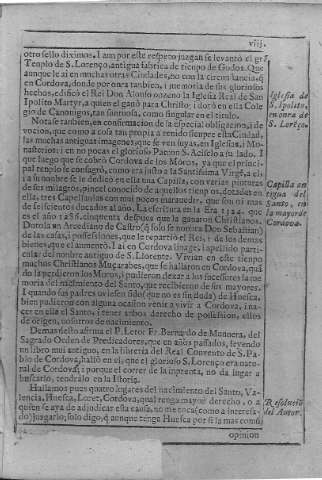 viij.
otro sello diximos. I aun por este respeto juzgan se levantò el grã
Templo de S. Lorenço, antigua fabrica de tiempo de Godos. Que
aunque le ai en muchas otras Ciudades, no con la circunstancia, q̃
en Cordova, donde por onra tambien, i memoria de sus gloriosos
hechos, edificò el Rei Don Alonso onzeno la Iglesia Real de San
Ipolito Martyr, a quien el ganò para Christo; i dotò en ella Colegio
de Canonigos, tan suntuosa, como singular en el titulo.
Iglesia de
S. Ipolito,
en onra de
S. Lorẽço.
Notase tambien, en confirmacion de la especial obligacion, i devocion,
que como a cosa tan propia a tenido siempre esta Ciudad,
las muchas antiguas imagenes, que se ven suyas, en Iglesias, i Monasterios;
i en no pocas el glorioso Patron S. Acisclo a su lado. I
que luego que se cobrò Cordova de los Moros, ya que el principal
templo se consagrò, como era justo a la Santissima Virgẽ, a el
i a su nombre se le dedicò en ella una Capilla, con varias pinturas
de sus milagros, pincel conocido de aquellos tiempos, dotadas en
ella, tres Capellanias con mui pocos maravedis, que son oi mas
de seiscientos ducados al año. La escritura en la Era 1324. que
es el año 1286. cinquenta despues que la ganaron Christianos.
Capilla an
tigua del
Santo, en
la mayor de
Cordova.
Dotola un Arcediano de Castro (q̃ solo se nonbra Don Sebastian)
de las casas, i possessiones, que le repartiò el Rei, i de los demas
bienes, que el aumentò. I ai en Cordova linage, i apellido particular
del nonbre antiguo de S. Llorente. Vivian en este tiempo
muchos Christianos Muçarabes, que se hallaron en Cordova, quãdo
la perdieron los Moros, i pudieron dexar a los sucessores la memoria
del nacimiento del Santo, que recibieron de sus mayores.
I quando sus padres uviessen sido (que no es sin duda) de Huesca,
bien pudieron con alguna ocasion venir a vivir a Cordova, i nacer
en ella el Santo, i tener ambos derecho de possession, ellos
de origen, i nosotros de nacimiento.
Demas desto afirma el P. Letor Fr. Bernardo de
Sagrado Orden de Predicadores, que en años passados, leyendo
un libro mui antiguo, en la libreria del Real Convento de S. Pablo
de Cordova, hallò en el, que el glorioso S. Lorenço era natural
de Cordova; i porque el correr de la inprenta, no da lugar a
buscarlo, tendràlo en la Istoria.
Hallamos pues quatro lugares del nacimiento del Santo, Valencia,
Huesca, Loret, Cordova, qual tenga mayor derecho, o a
quien se aya de adjudicar esta causa, no me toca (como a interesado)
juzgarlo; solo digo, q̃ aunque tengo Huesca por si la mas comũ
Resoluciõ
del Autor.
opinion